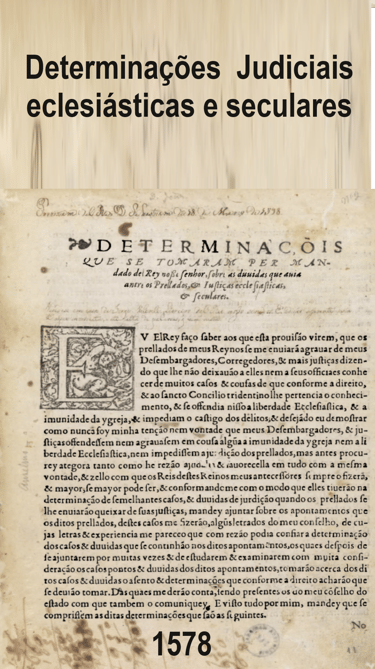 Determinações Judiciais
eclesiásticas e seculares
DETERMINAÇÕIS
QUE SE TOMARAM PER MAN-
dado del Rey nosso senhor, sobre as duuidas que auia
antre os Prellados, & Iustiças ecclesiasticas,
& seculares.
EV ElRey faço saber aos que esta prouisão virem, que os
prellados de meus Reynos se me enuiarã agrauar de meus
Desembargadores, Corregedores, & mais justiças dizen-
do que lhe não deixauão a elles nem a seus officiaes conhe
cer de muitos casos & cousas de que conforme a direito,
& ao sancto Concilio tridentino lhe pertencia o conheci-
mento, & se offendia nisso a liberdade Ecclesiastica, & a
imunidade da ygreja, & impediam o castigo dos delitos, & desejãdo eu demostrar
como nunca foy minha tenção nem vontade que meus Desembargadores, & ju-
stiças offendessem nem agrauassem em cousa algũa a imunidade da ygreja nem a li
berdade Ecclesiastica, nem impedissem a jurdição dos prellados, mas antes procu-
rey ategora tanto como he rezão & fauorecella em tudo com a mesma
vontade, & zello com que os Reis destes Reinos meus antecessores sempre o fizerã,
& mayor, se mayor pode ser, & conformandome com o modo que elles tiuerão na
determinação de semelhantes casos, & duuidas de jurdição quando os prellados se
lhe enuiarão queixar de suas justiças, mandey ajuntar sobre os apontamentos que
os ditos prellados, destes casos me fizerão, algũs letrados do meu conselho, de cu-
jas letras & experiencia me pareceo que com rezão podia confiar a determinação
dos casos & duuidas que se continhão nos ditos apontamentos, os quaes despois de
se ajuntarem por muitas vezes & de estudarem & examinarem com muita consi-
deração os casos pontos & duuidas dos ditos apontamentos, tomarão acerca dos di
tos casos & duuidas o asento & determinações que conforme a direito acharão que
se deuião tomar. Das quaes me derão conta, sendo presentes os do meu cõselho do
estado com que tambem o comuniquey. E visto tudo por mim, mandey que se
comprissem as ditas determinações que são as seguintes.
No
1578